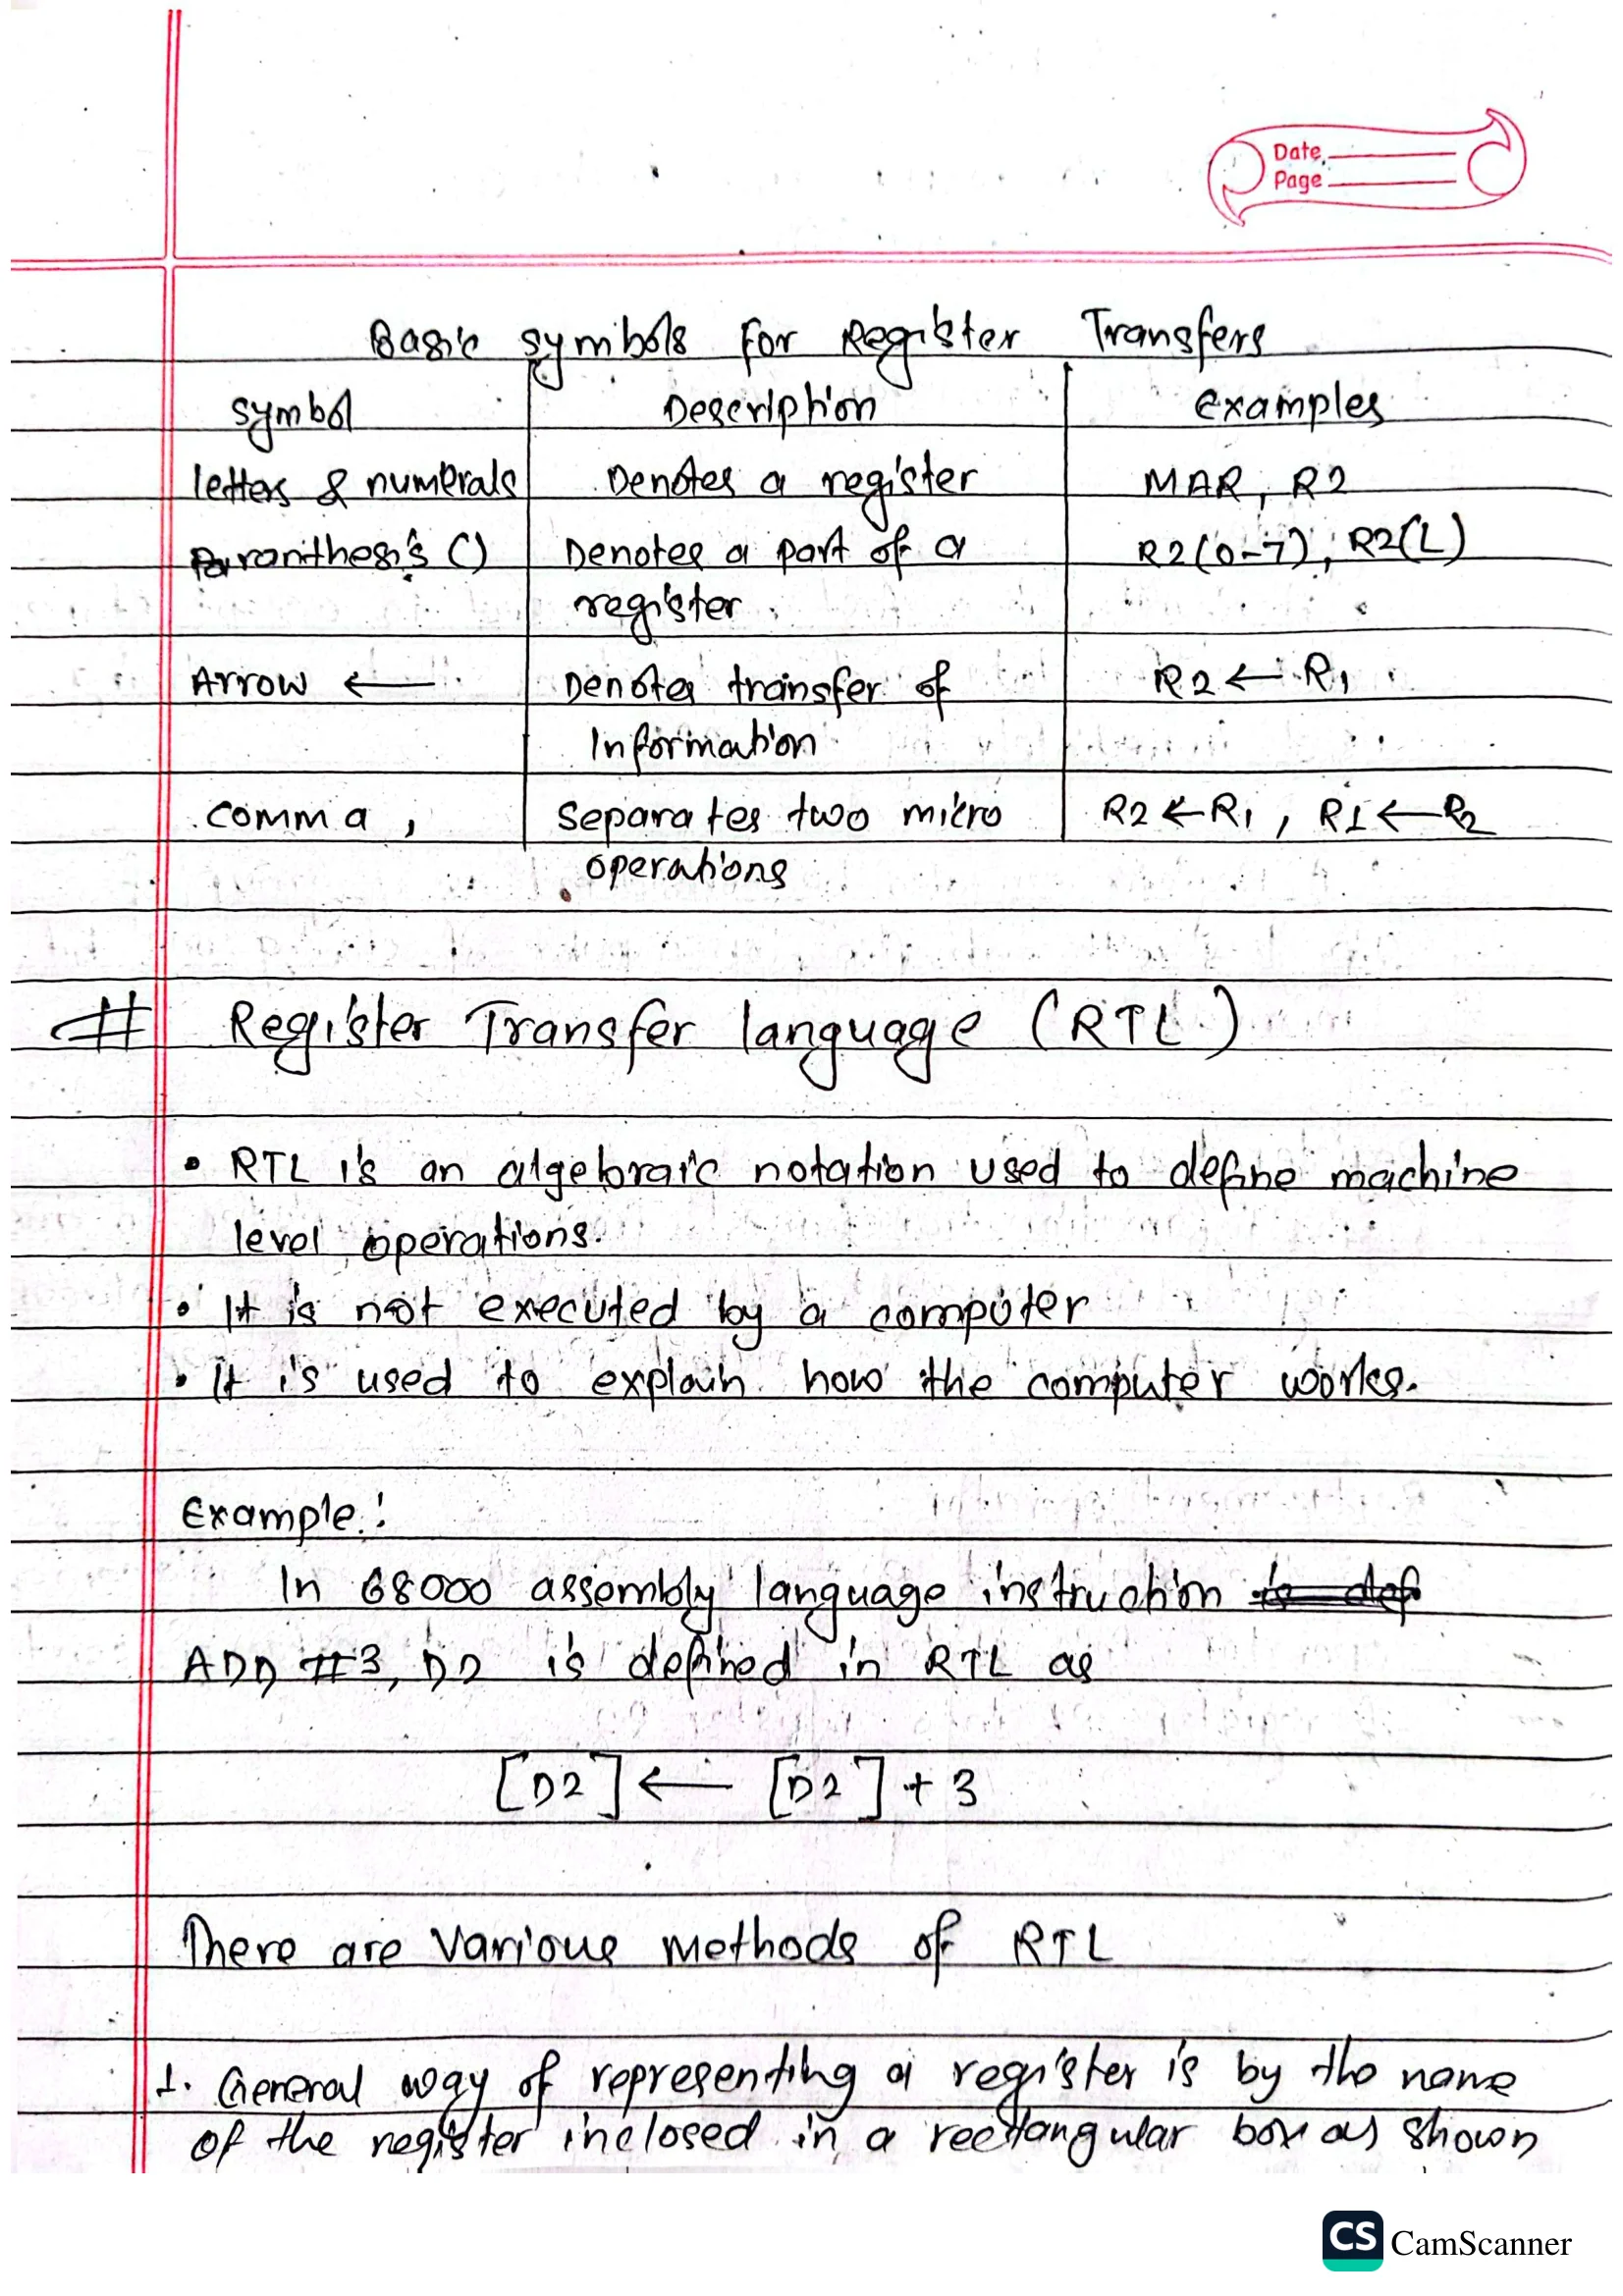 Date
Page
Basic symbols for Register Transfers
symbol Description examples
letters & numerals Denotes a register MAR, R2
Paranthesis () Denotes a part of a R2(0-7), R2(L)
register
Arrow ← Denotes transfer of R2 ← R1
Information
comma , separates two micro R2 ← R1 , R1 ← R2
operations
# Register Transfer language (RTL)
• RTL is an algebraic notation used to define machine
level operations.
• It is not executed by a computer
• It is used to explain how the computer works.
Example:
In 68000 assembly language instruction is def
ADD #3, D2 is defined in RTL as
[D2] ← [D2] + 3
There are various methods of RTL
1. General way of representing a register is by the name
of the register inclosed in a rectangular box as shown
CS CamScanner